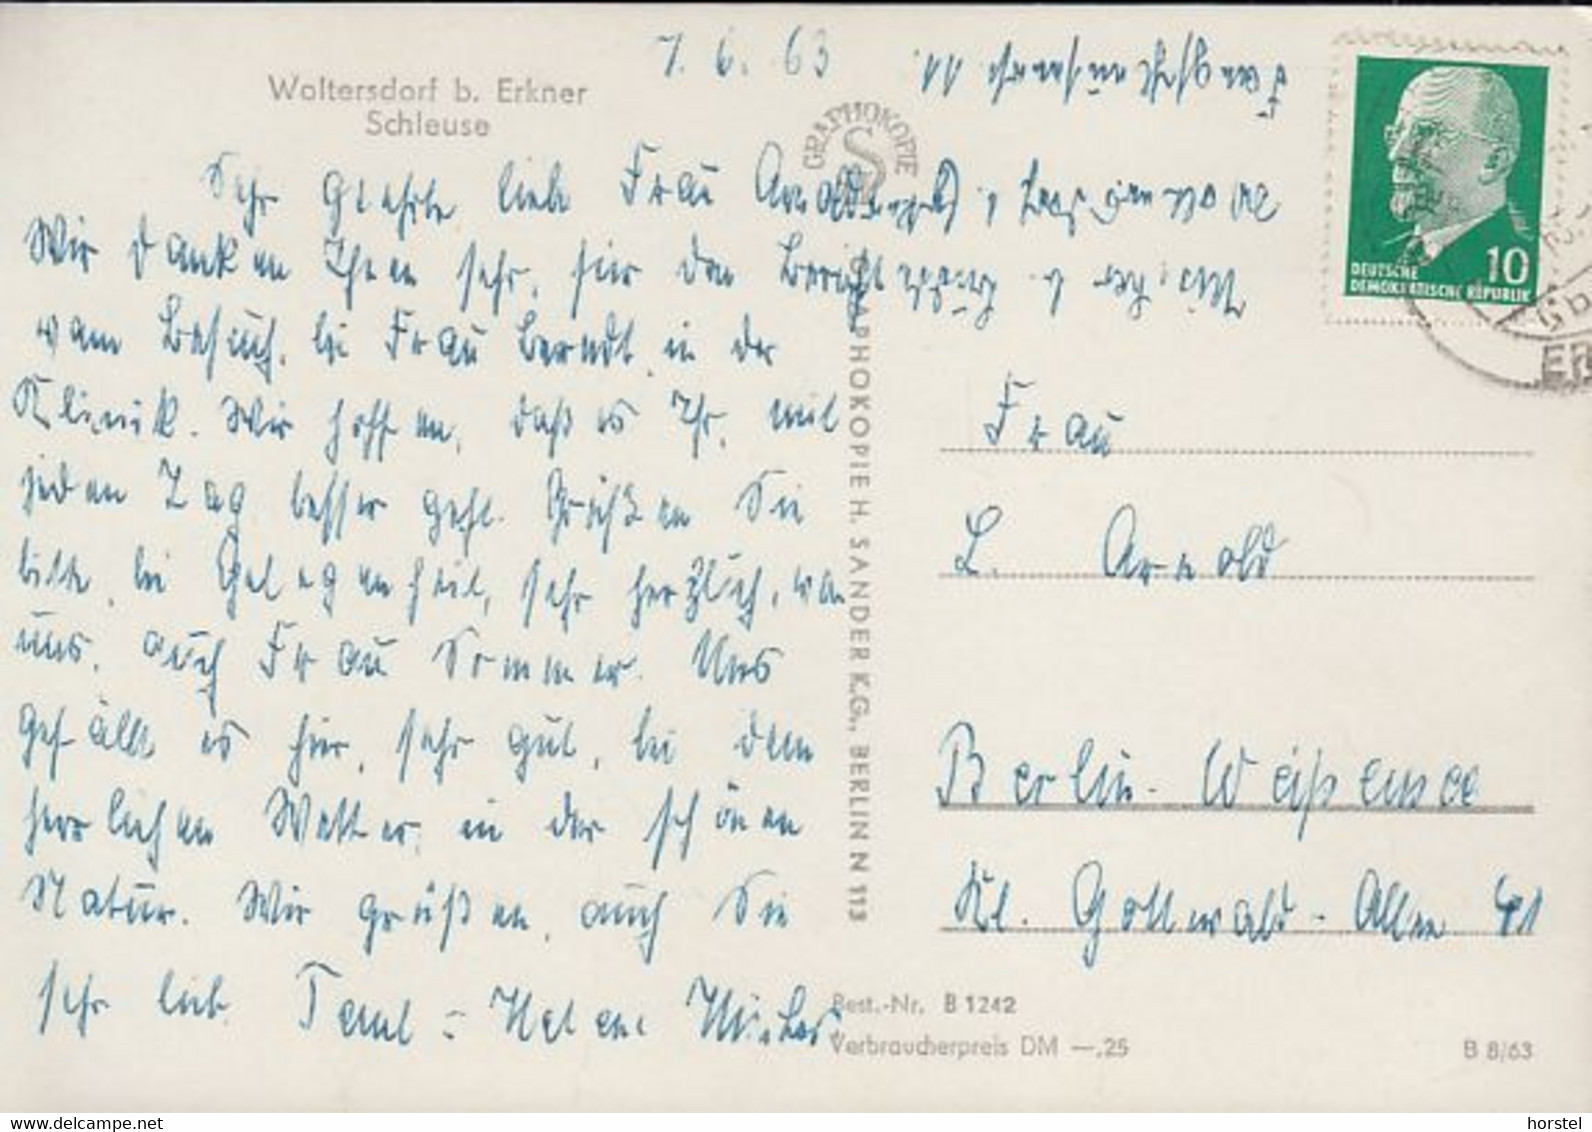 Woltersdorf b. Erkner
Schleuse
7. 6. 63
Sehr geehrte, liebe Frau Arnold
Wir danken Ihnen sehr, für den Bericht
vom Besuch, bei Frau Berndt, in der
Klinik. Wir hoffen, daß es Ihr, mit
jeden Tag besser geht. Grüßen Sie
bitte, bei Gelegenheit, sehr herzlich, von
uns, auch Frau Sommer. Uns
gefällt es hier, sehr gut, bei dem
herrlichen Wetter, in der schönen
Natur. Wir grüßen, auch Sie
sehr lieb.
GRAPHOKOPIE
GRAPHOKOPIE H. SANDER K.G., BERLIN N 113
DEUTSCHE
DEMOKRATISCHE REPUBLIK
10
Frau
L. Arnold
Berlin-Weißensee
Kl. Gottwald-Allee 41
Best.-Nr. B 1242
Verbraucherpreis DM —,25
B 8/63
delcampe.net
horstel